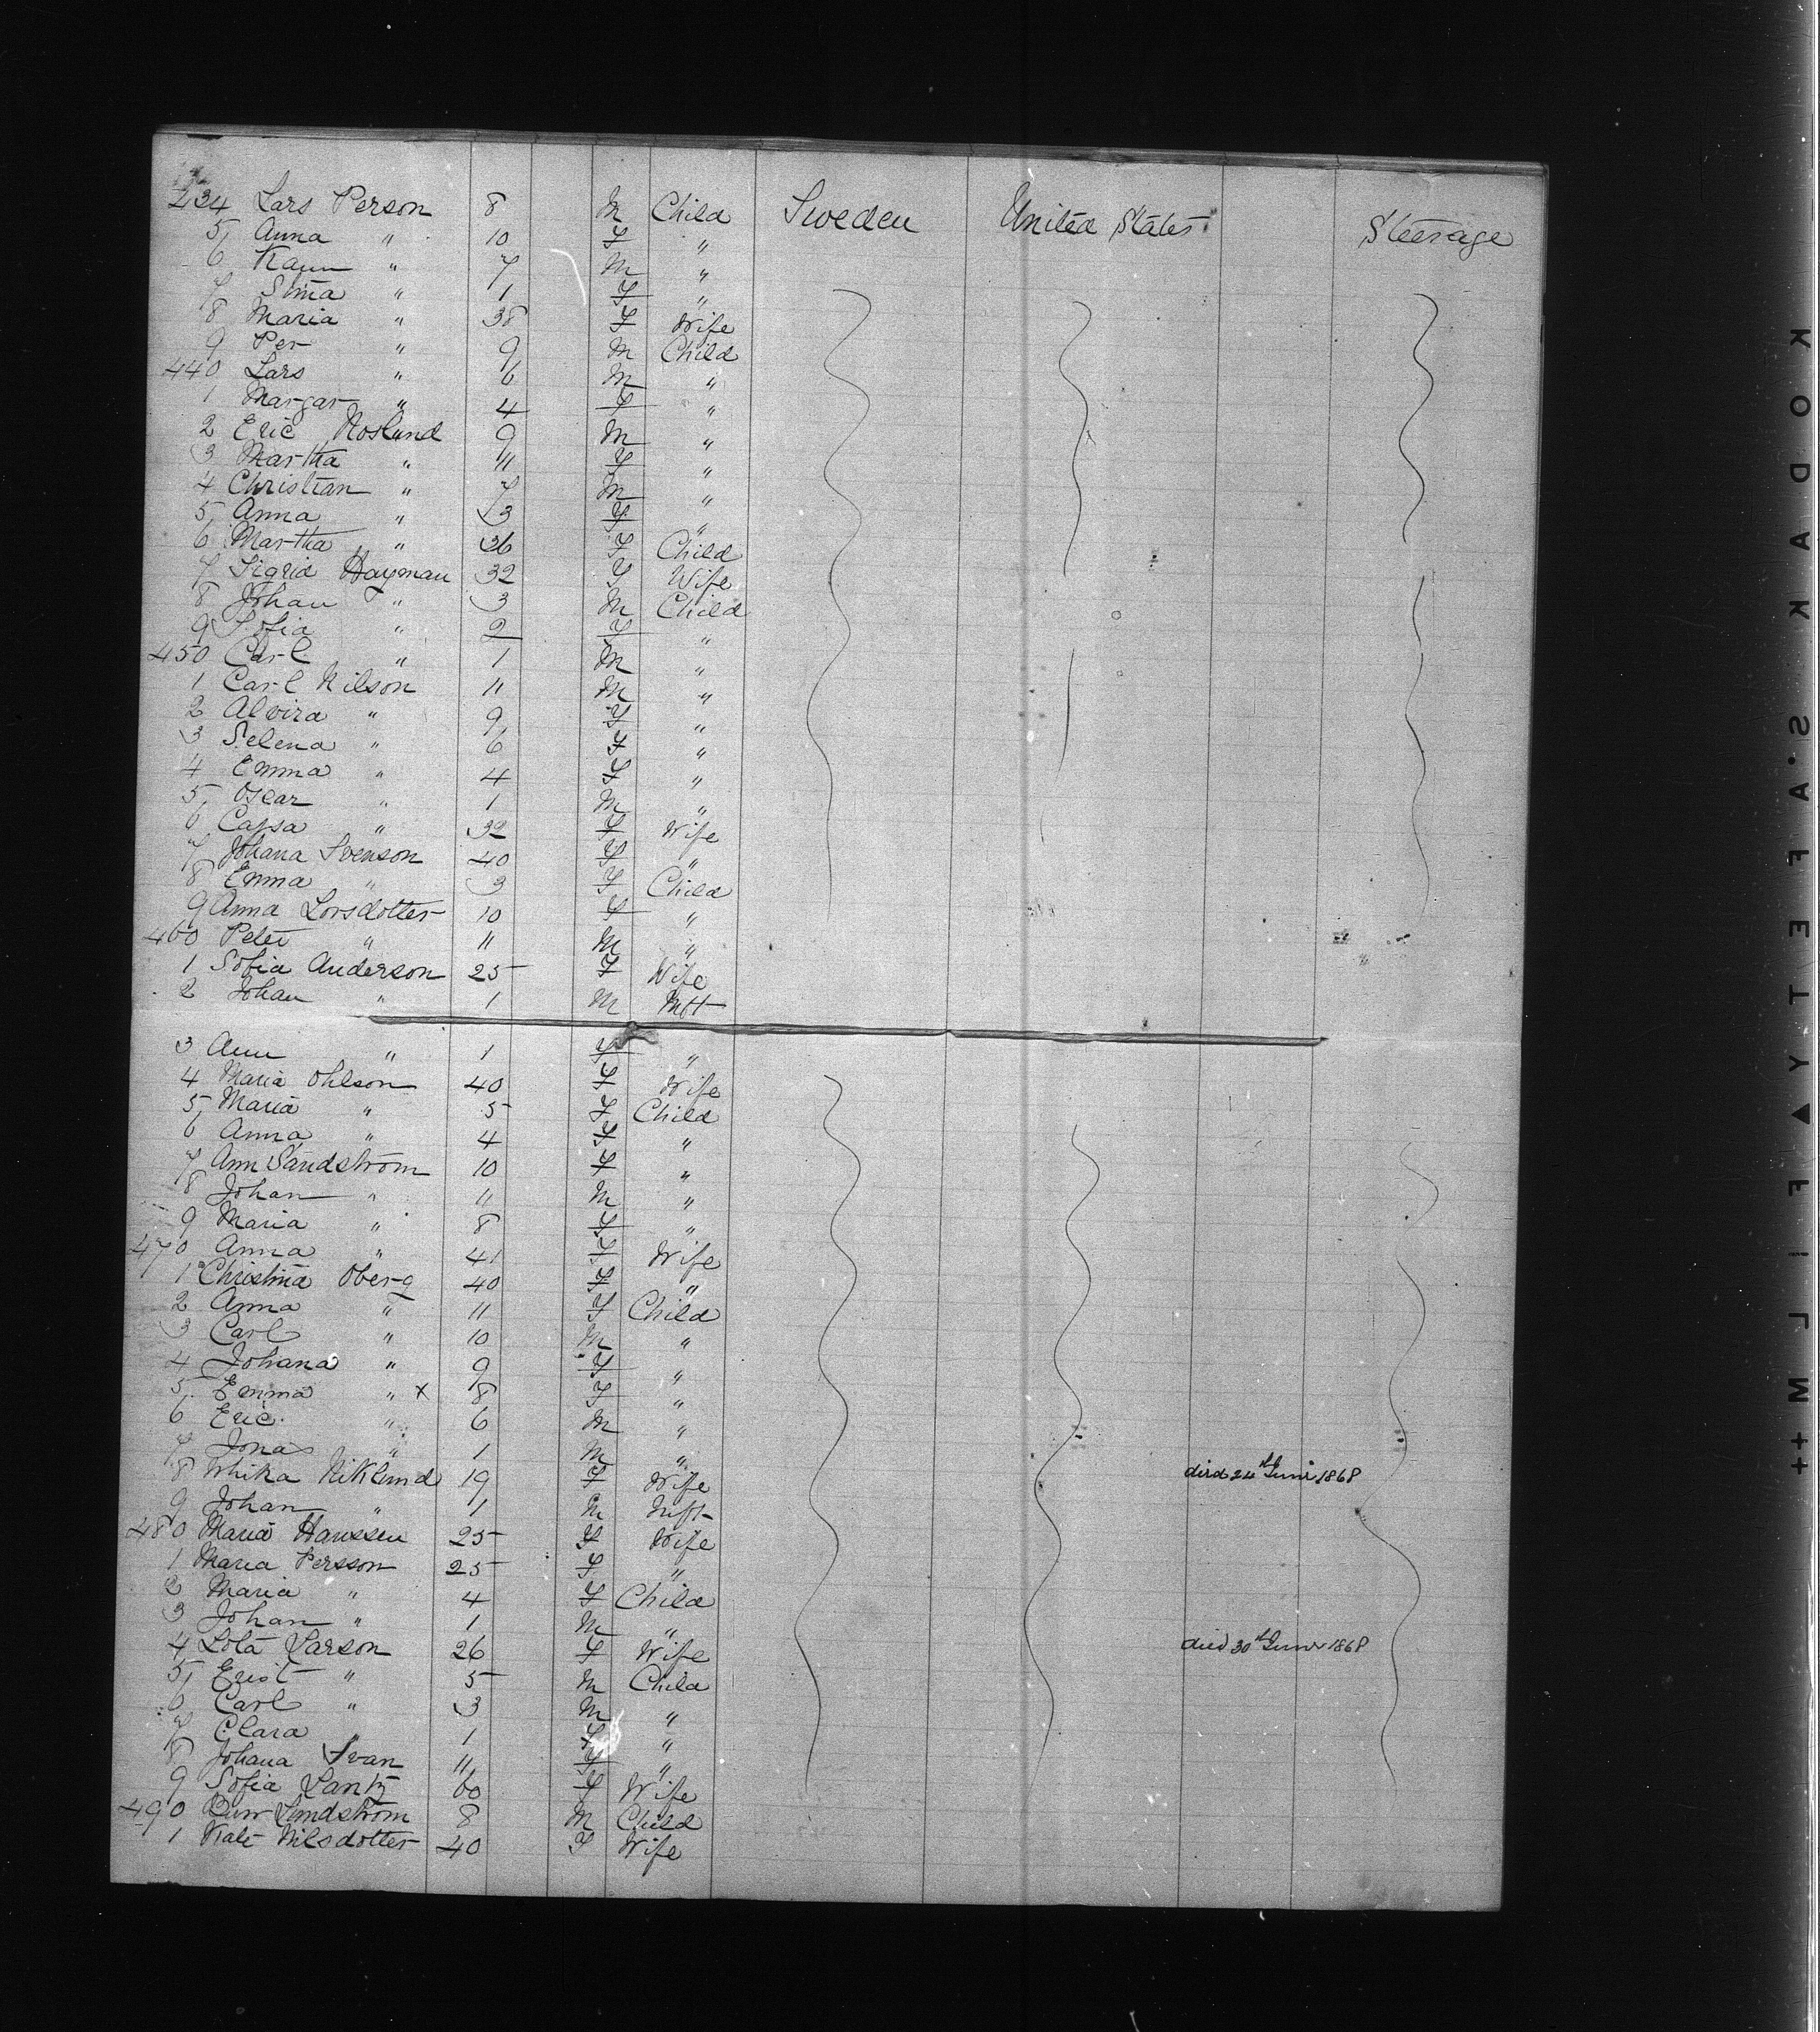 434 Lars Person 8 M Child Sweden United States Steerage
5 Anna " 10 F "
6 Karin " 7 M "
7 Stina " 1 F "
8 Maria " 38 F Wife
9 Per " 9 M Child
440 Lars " 6 M "
1 Margar " 4 F "
2 Eric Noslund 9 M "
3 Martha " 11 F "
4 Christian " 7 M "
5 Anna " 3 F "
6 Martha " 36 F Child
7 Sigrid Hayman 32 F Wife
8 Johan " 3 M Child
9 Sofia " 2 F "
450 Carl " 1 M "
1 Carl Nilson 11 M "
2 Alvira " 9 F "
3 Selena " 6 F "
4 Emma " 4 F "
5 Oscar " 1 M "
6 Cajsa " 32 F Wife
7 Johana Svenson 40 F "
8 Emma " 3 F Child
9 Anna Lorsdotter 10 F "
460 Peter " 11 M "
1 Sofia Anderson 25 F Wife
2 Johan " 1 M Inft
3 Ann " 1 F "
4 Maria Ohlson 40 F Wife
5 Maria " 5 F Child
6 Anna " 4 F "
7 Ann Sandstrom 10 F "
8 Johan " 11 M "
9 Maria " 8 F "
470 Anna " 41 F Wife
1 Christina Oberg 40 F "
2 Anna " 11 F Child
3 Carl " 10 M "
4 Johana " 9 F "
5 Emma " x 8 F "
6 Eric " 6 M "
7 Jonas " 1 M "
8 Niklund 19 F Wife died 24th Juni 1868
9 Johan " 1 M Inft
480 Maria Hanssen 25 F Wife
1 Maria Persson 25 F "
2 Maria " 4 F Child
3 Johan " 1 M "
4 Lota Larson 26 F Wife died 30th Juni 1868
5 Erist " 5 M Child
6 Carl " 3 M "
7 Clara " 1 F "
8 Johana Svan 11 F "
9 Sofia Lantz 60 F Wife
490 Lindstrom 8 M Child
1 Kate Nilsdotter 40 F Wife